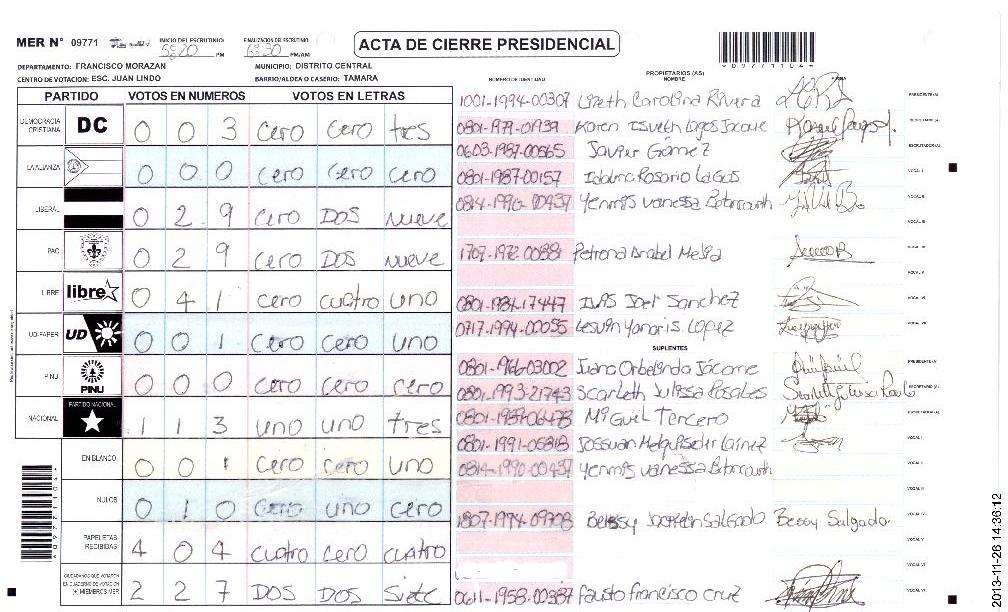 MER N° 09771 INICIO DEL ESCRUTINIO 5:20 PM FINALIZACION DEL ESCRUTINIO 6:30 PM/AM ACTA DE CIERRE PRESIDENCIAL
DEPARTAMENTO: FRANCISCO MORAZAN MUNICIPIO: DISTRITO CENTRAL
CENTRO DE VOTACION: ESC. JUAN LINDO BARRIO/ALDEA O CASERIO: TAMARA
PARTIDO VOTOS EN NUMEROS VOTOS EN LETRAS
DEMOCRACIA CRISTIANA DC 0 0 3 cero cero tres
LA ALIANZA 0 0 0 cero cero cero
LIBERAL 0 2 9 cero DOS nueve
PAC 0 2 9 cero DOS nueve
LIBRE libre 0 4 1 cero cuatro uno
UD-FAPER UD 0 0 1 cero cero uno
PINU PINU 0 0 0 cero cero cero
NACIONAL PARTIDO NACIONAL 1 1 3 uno uno tres
EN BLANCO 0 0 1 cero cero uno
NULOS 0 1 0 cero uno cero
PAPELETAS RECIBIDAS 4 0 4 cuatro cero cuatro
CIUDADANOS QUE VOTARON EN CUADERNO DE VOTACION (+) MIEMBROS MER 2 2 7 DOS DOS Siete
NUMERO DE IDENTIDAD PROPIETARIOS (AS) NOMBRE FIRMA
1001-1994-00307 Lizeth Carolina Rivera PRESIDENTE (A)
0801-1979-01939 Karen Lagos SECRETARIO (A)
0603-1987-00565 Javier Gómez ESCRUTADOR (A)
0801-1987-00157 Rosario Lagos VOCAL I
0814-1990-00437 Yennys Vanessa VOCAL II
VOCAL III
Petrona VOCAL IV
VOCAL V
0801-1984-17447 Joel Sanchez VOCAL VI
0717-1994-00055 Lopez VOCAL VII
SUPLENTES
0801-1966-03002 Juana Orbelinda Jácome PRESIDENTE (A)
0801-1993-21743 Scarleth Julissa Rosales SECRETARIO (A)
Miguel Tercero ESCRUTADOR (A)
0801-1991- VOCAL I
0814-1990-00437 Yennys Vanessa VOCAL II
VOCAL III
1807-1994- Salgado Bessy Salgado VOCAL IV
VOCAL V
VOCAL VI
0611-1958-00387 Fausto francisco cruz VOCAL VII
2013-11-26 14:36:12